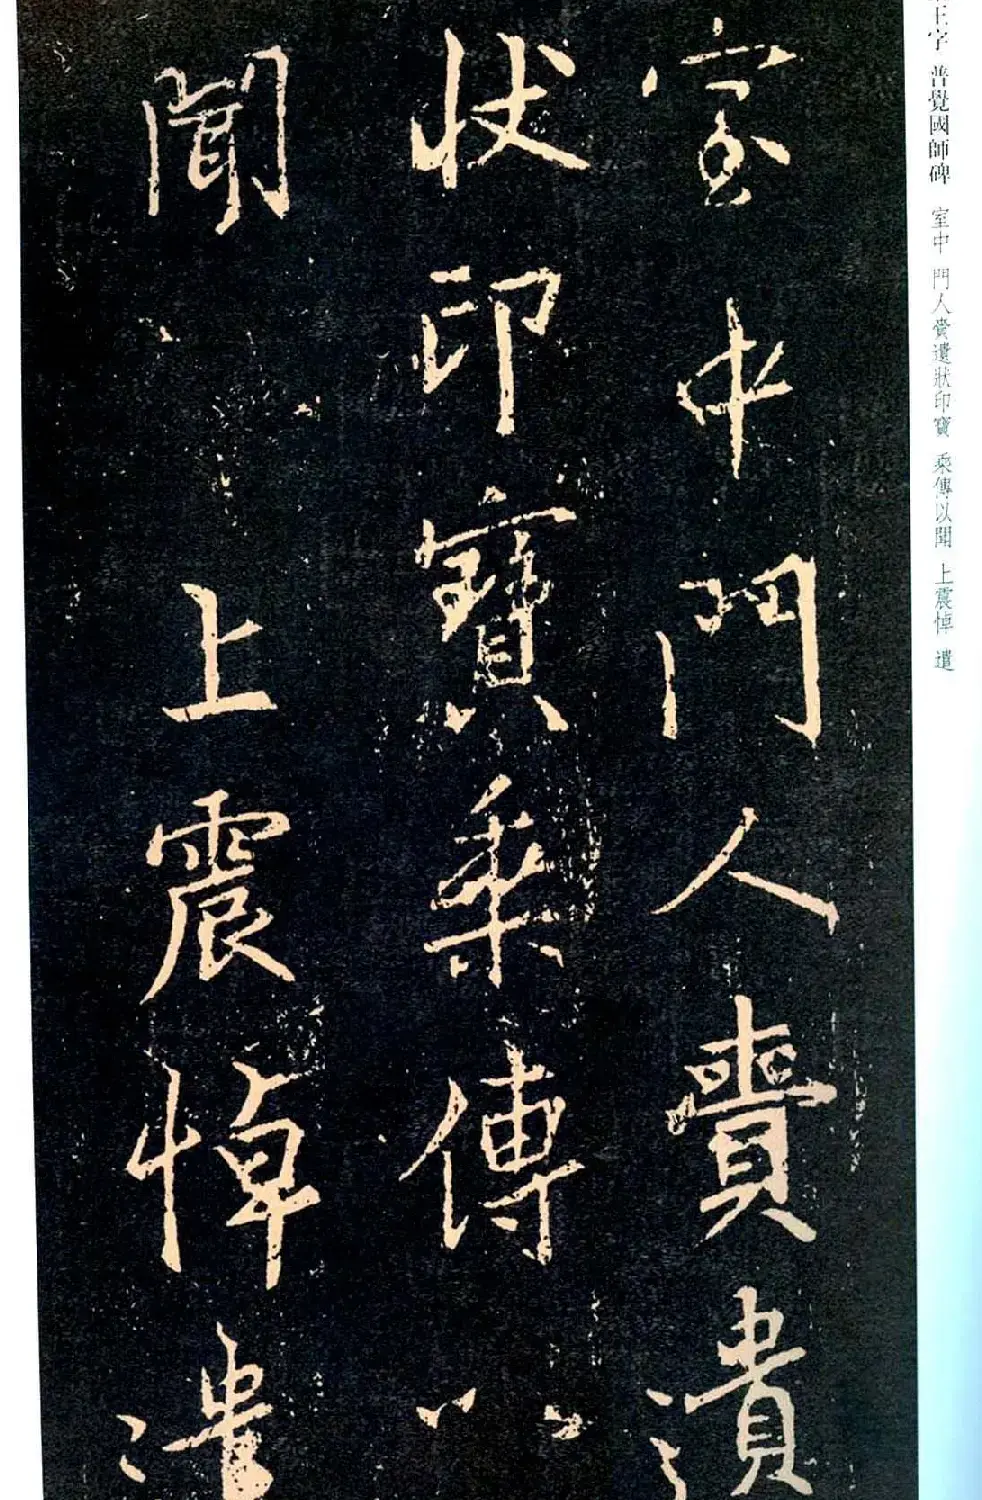 室中門人賷遺
狀印寶乘傳以
聞上震悼遣
王字 普覺國師碑 室中 門人賷遺狀印寶 乘傳以聞 上震悼 遣